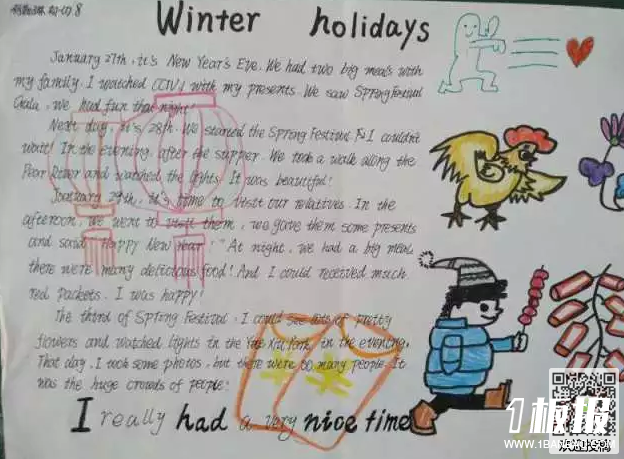 Winter holidays
January 27th, it's New Year's Eve. We had two big meals with
my family. I watched CCTV1 with my presents. We saw Spring Festival
Gala. We had fun that night!
Next day, it's 28th. We stared the Spring Festival I couldn't
wait! In the evening, after the supper. We took a walk along the
Pear River and watched the lights. It was beautiful!
January 29th, it's time to visit our relatives. In the
afternoon, we went to visit them, we gave them some presents
and said "Happy New Year!" At night, we had a big meal,
there were many delicious food! And I could received much
red packets. I was happy!
The third of Spring Festival. I could see lots of pretty
flowers and watched lights in the Park in the evening.
That day, I took some photos, but there were so many people. It
was the huge crowds of people!
I really had a very nice time
1板报
WWW.1BANBAO.COM
欢迎投稿